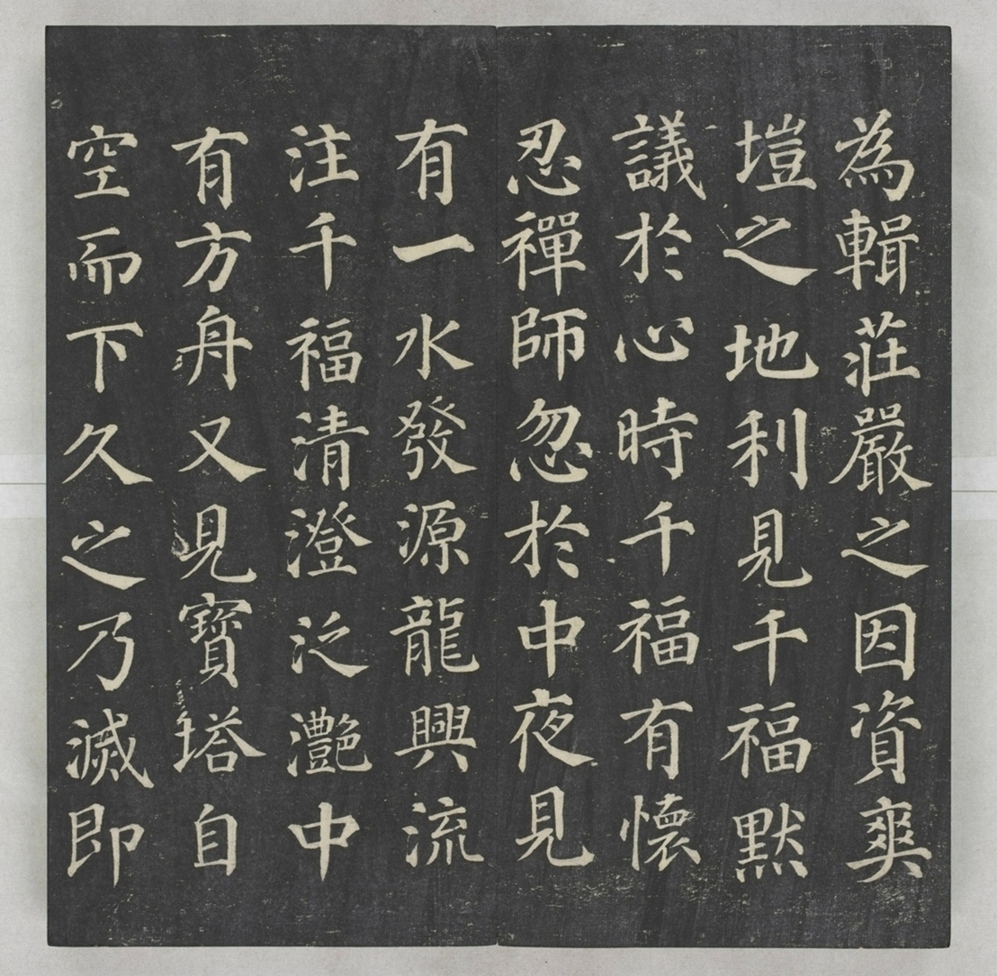 為輯莊嚴之因資爽
塏之地利見千福默
議於心時千福有懷
忍禪師忽於中夜見
有一水發源龍興流
注千福清澄泛灔中
有方舟又見寶塔自
空而下久之乃滅即